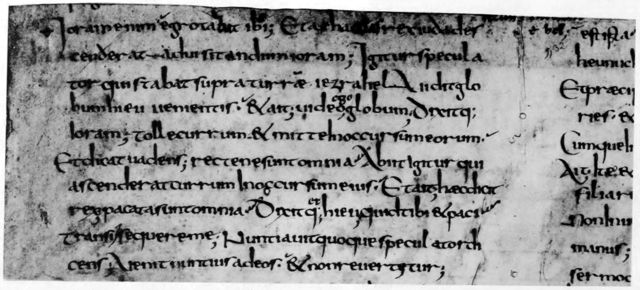 Ioram enim egrotabat ibi; Et rex iuda des
cenderat ad uisitandum ioram; Igitur specula
tor qui stabat supra turrē iezrahel Uidit glo
bum hieu uenientis. & ait; uideo ego globum; Dixitq;
Ioram; tolle currum & mitte In occursum eorum.
Et dicat uadens; rectene sunt omnia. Abiit igitur qui
ascenderat currum In occursum eius. Et ait; haec dicit
rex pacata sunt omnia. Dixitq; hieu; quid tibi & paci
transi & sequere me; Nuntiauit quoque speculator di
cens; Uenit nuntius ad eos. & non reuertitur;
est ista
Et praeci
ries. &
Cumque h
Ait.
filia r
Non inu
manus;
sermo